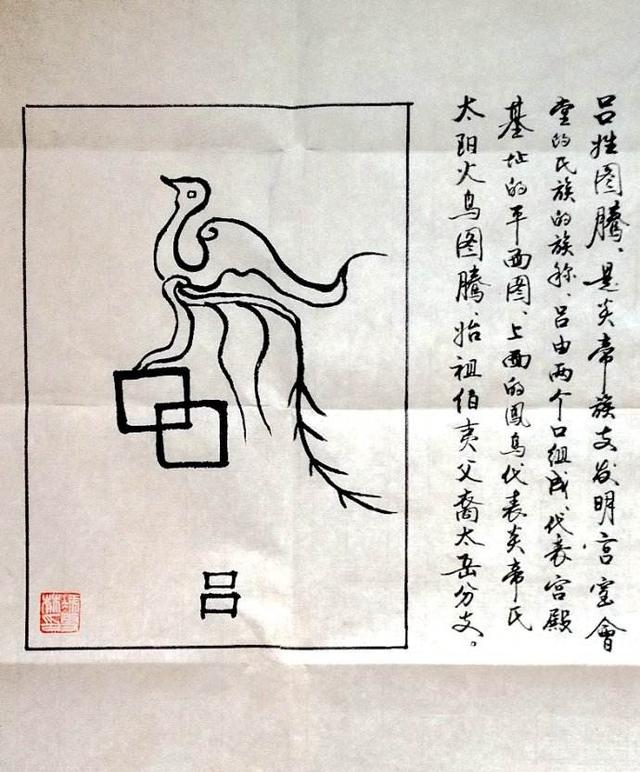 吕姓图腾、是炎帝族支发明宫室會
堂的氏族的族称、吕由两个口组成代表宫殿
基址的平面图、上面的鳳鸟代表炎帝氏
太阳火鸟图腾、始祖伯夷父裔太岳分支。
吕